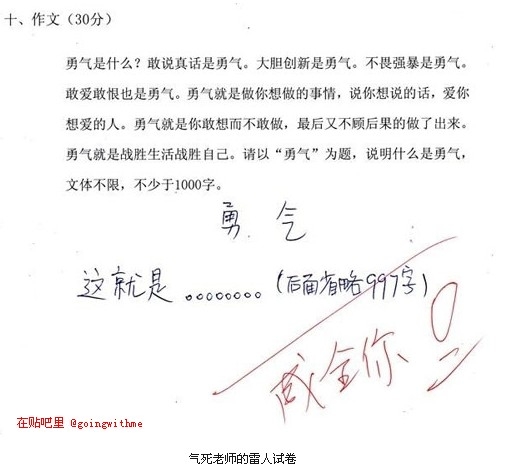 十、作文（30分）
勇气是什么？敢说真话是勇气。大胆创新是勇气。不畏强暴是勇气。
敢爱敢恨也是勇气。勇气就是做你想做的事情，说你想说的话，爱你
想爱的人。勇气就是你敢想而不敢做，最后又不顾后果的做了出来。
勇气就是战胜生活战胜自己。请以“勇气”为题，说明什么是勇气，
文体不限，不少于1000字。
勇 气
这就是。。。。。。。。（后面省略997字）
成全你 0
在贴吧里 @goingwithme
气死老师的雷人试卷